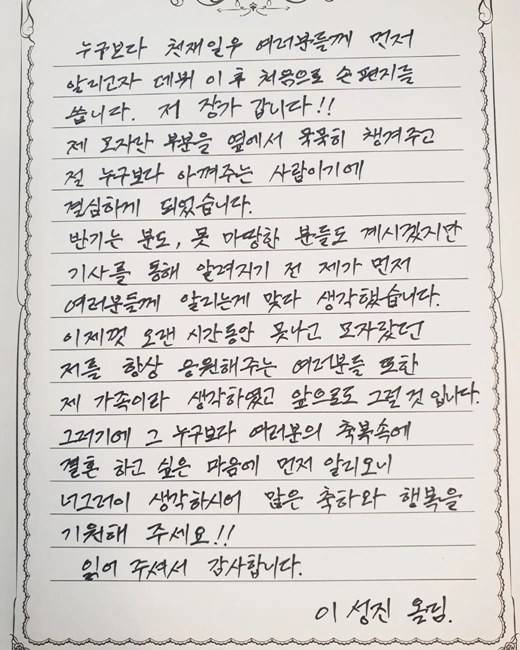 누구보다 천재일우 여러분들께 먼저
알리고자 데뷔 이후 처음으로 손편지를
씁니다. 저 장가 갑니다!!
제 모자란 부분을 옆에서 묵묵히 챙겨주고
절 누구보다 아껴주는 사람이기에
결심하게 되었습니다.
반기는 분도, 못 마땅한 분들도 계시겠지만
기사를 통해 알려지기 전 제가 먼저
여러분들께 알리는게 맞다 생각했습니다.
이제껏 오랜 시간동안 못나고 모자랐던
저를 항상 응원해주는 여러분들 또한
제 가족이라 생각하였고 앞으로도 그럴 것 입니다.
그러기에 그 누구보다 여러분의 축복속에
결혼 하고 싶은 마음에 먼저 알리오니
너그러이 생각하시어 많은 축하와 행복을
기원해 주세요!!
읽어 주셔서 감사합니다.
이 성진 올림.